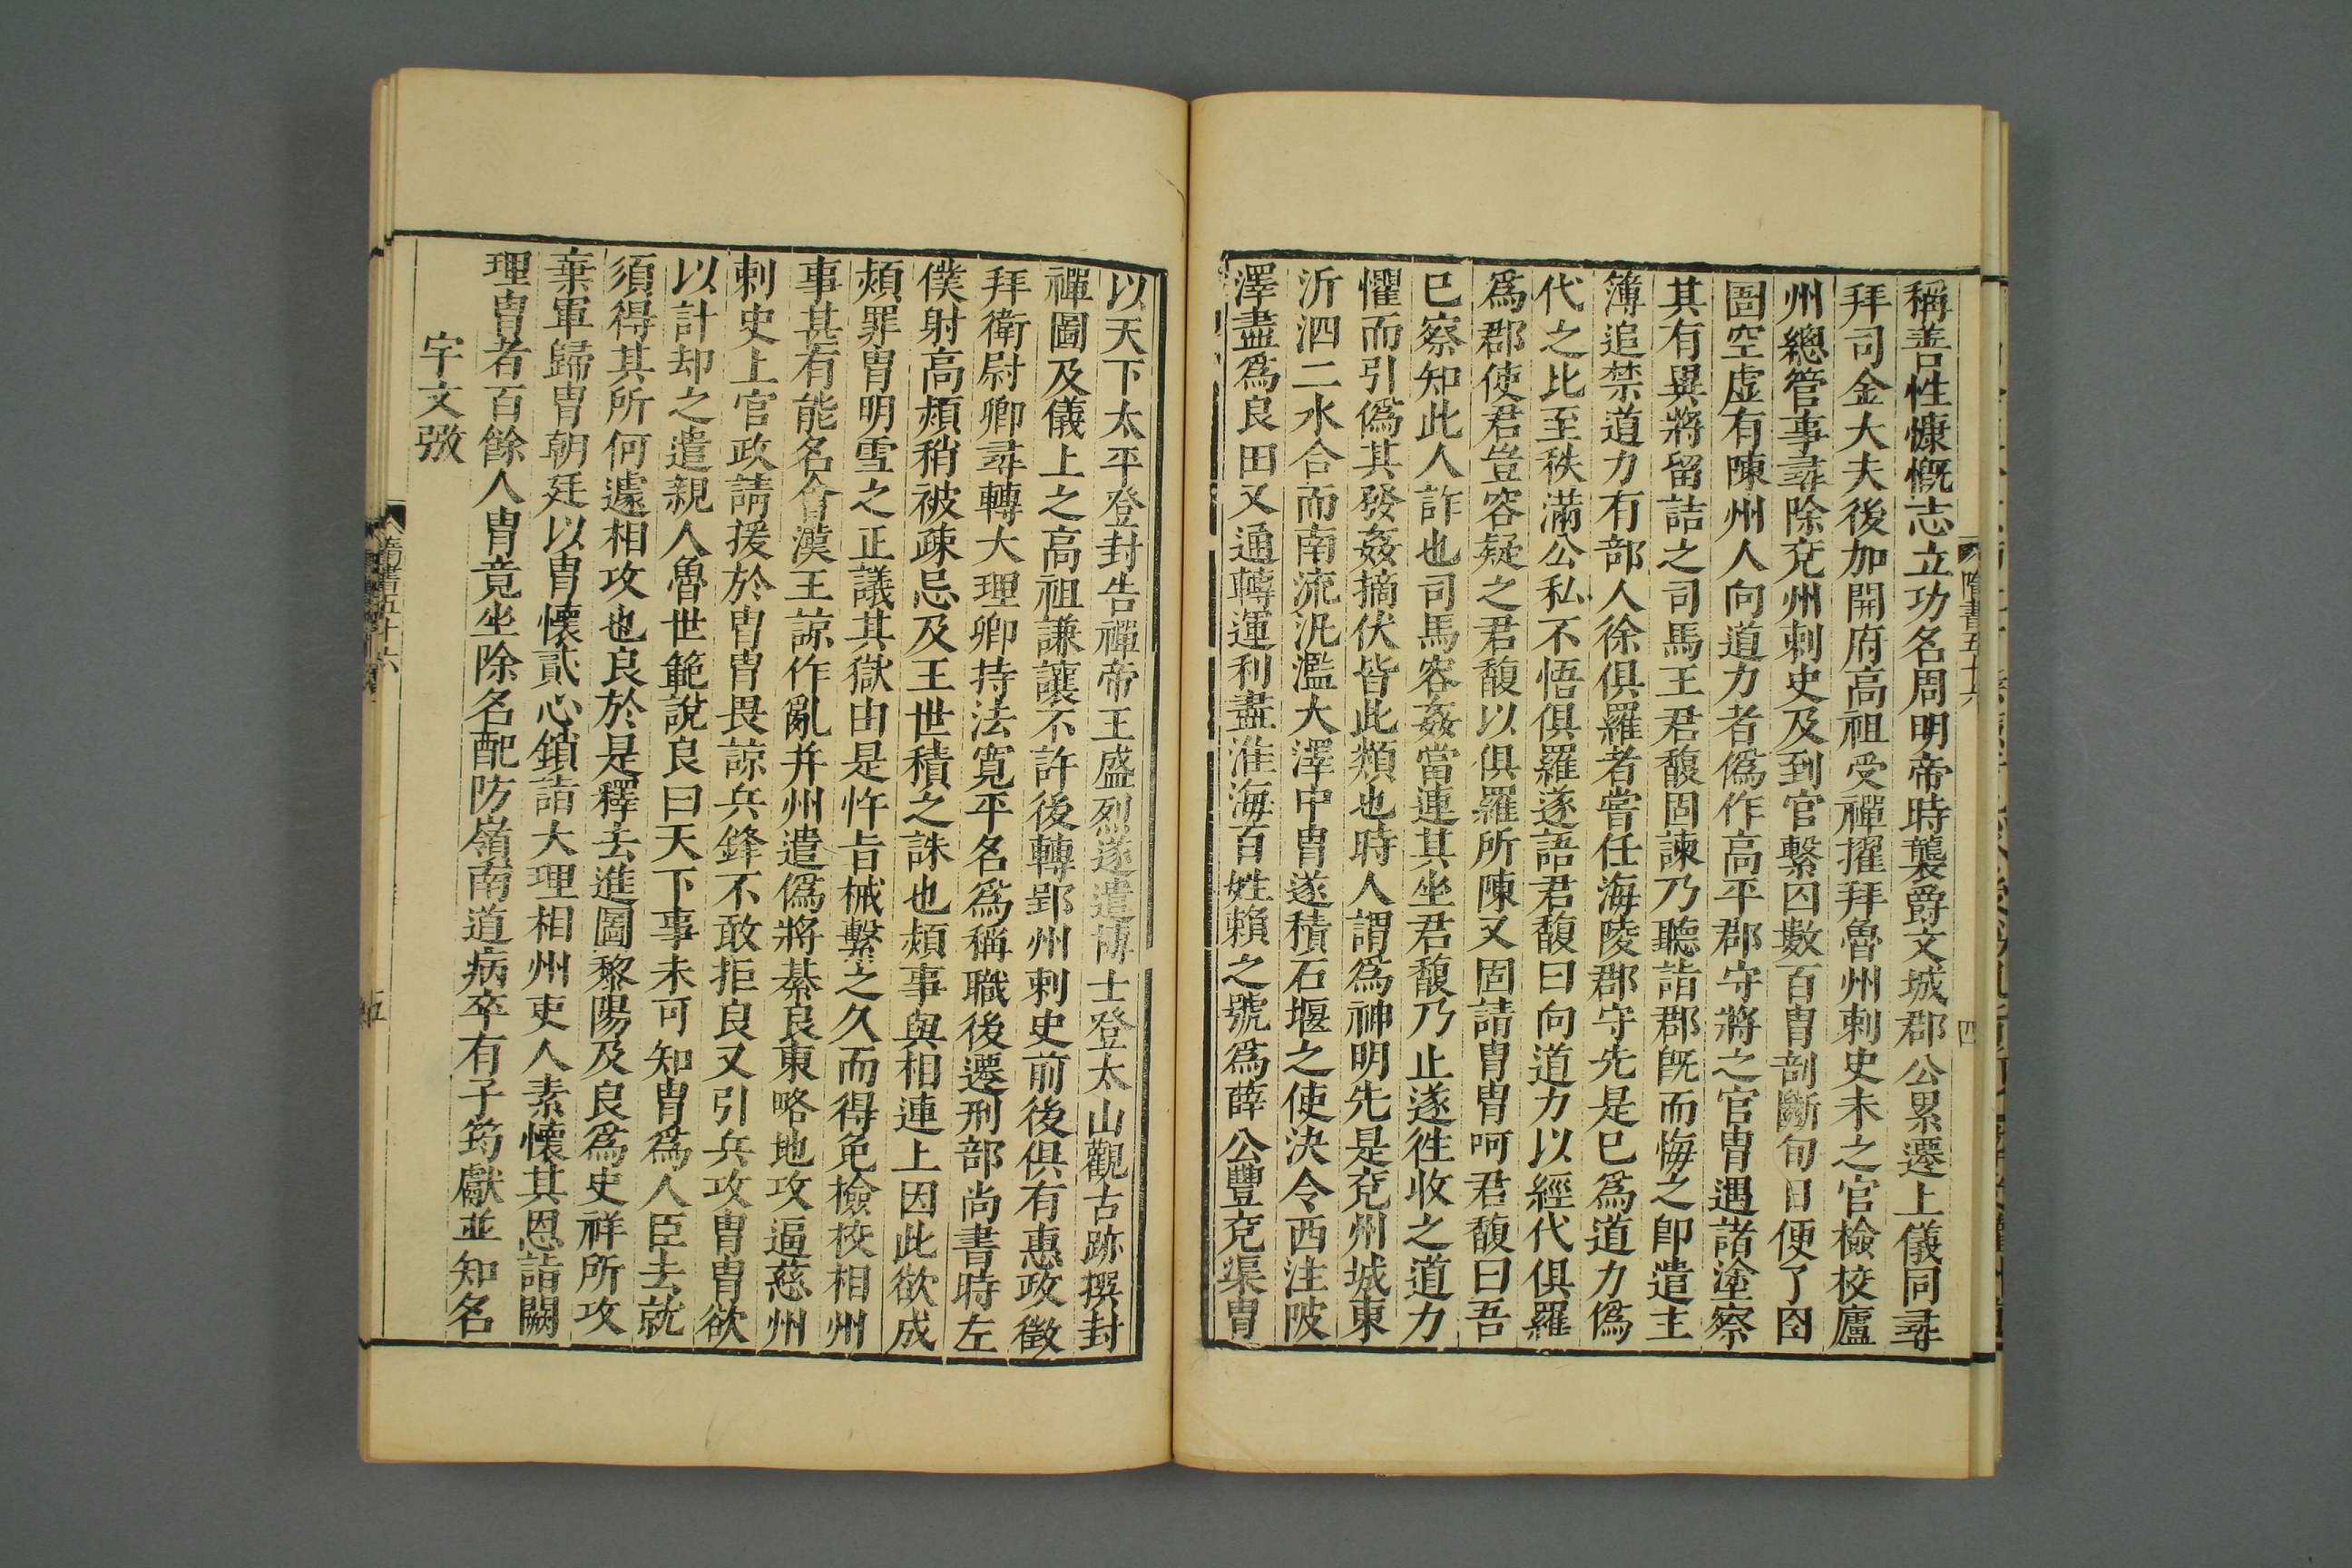 稱善性慷慨志立功名周明帝時襲爵文城郡公累遷上儀同尋
拜司金大夫後加開府高祖受禪擢拜魯州刺史未之官檢校廬
州總管事尋除兗州刺史及到官繫囚數百冑剖斷旬日便了囹
圄空虛有陳州人向道力者僞作高平郡守將之官冑遇諸塗察
其有異將留詰之司馬王君馥固諫乃聽詣郡旣而悔之卽遣主
簿追禁道力有部人徐俱羅者嘗任海陵郡守先是已爲道力僞
代之比至秩滿公私不悟俱羅遂語君馥曰向道力以經代俱羅
爲郡使君豈容疑之君馥以俱羅所陳又固請冑冑呵君馥曰吾
已察知此人詐也司馬容姦當連其坐君馥乃止遂徃收之道力
懼而引僞其發姦摘伏皆此類也時人謂爲神明先是兗州城東
沂泗二水合而南流汎濫大澤中冑遂積石堰之使決令西注陂
澤盡爲良田又通轉運利盡淮海百姓賴之號爲薛公豐兗渠冑
隋書五十六
四
以天下太平登封告禪帝王盛烈遂遣博士登太山觀古跡撰封
禪圖及儀上之高祖謙讓不許後轉郢州刺史前後俱有惠政徵
拜衛尉卿尋轉大理卿持法寬平名爲稱職後遷刑部尚書時左
僕射高熲稍被疎忌及王世積之誅也熲事與相連上因此欲成
熲罪冑明雪之正議其獄由是忤旨械繫之久而得免檢校相州
事甚有能名會漢王諒作亂并州遣僞將綦良東略地攻逼慈州
刺史上官政請援於冑冑畏諒兵鋒不敢拒良又引兵攻冑冑欲
以計却之遣親人魯世範說良曰天下事未可知冑爲人臣去就
須得其所何遽相攻也良於是釋去進圖黎陽及良爲史祥所攻
棄軍歸冑朝廷以冑懷貳心鎖詣大理相州吏人素懷其恩詣闕
理冑者百餘人冑竟坐除名配防嶺南道病卒有子筠獻並知名
宇文㢸
隋書五十六
五